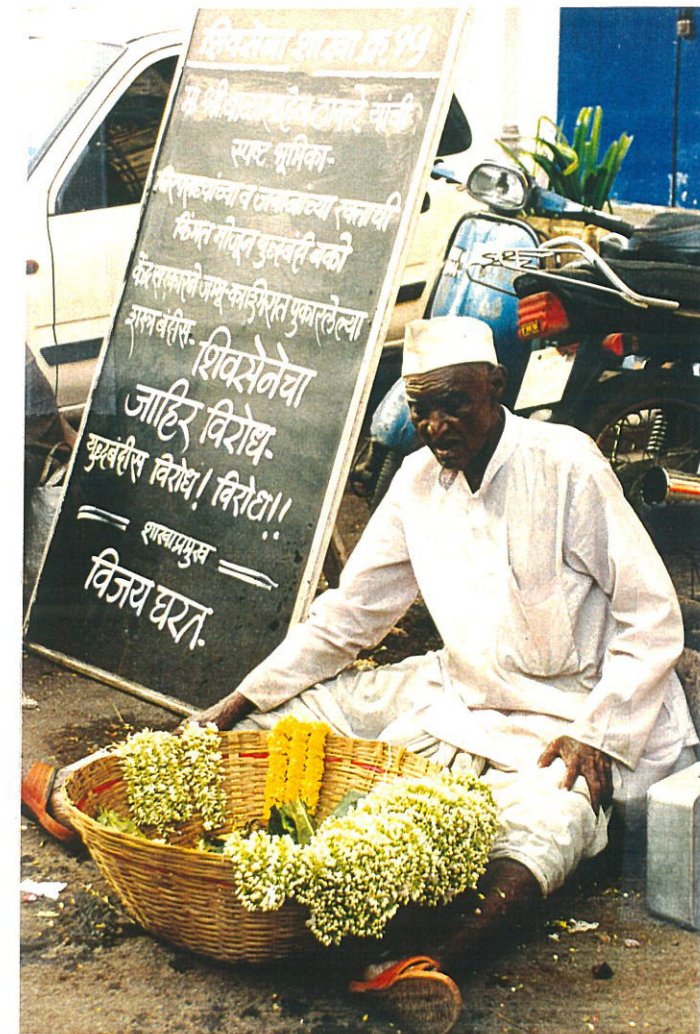 शिवसेना शाखा क्र. १५
मा. श्री बाळासाहेब ठाकरे यांची
स्पष्ट भूमिका-
व जवानांच्या रक्ताची
किंमत मोजून युद्धबंदी नको
केंद्रसरकारने जम्मू-काश्मिरात पुकारलेल्या
शस्त्रबंदीस- शिवसेनेचा
जाहिर विरोध-
युद्धबंदीस विरोध! विरोध!!
शाखाप्रमुख
विजय घरत-